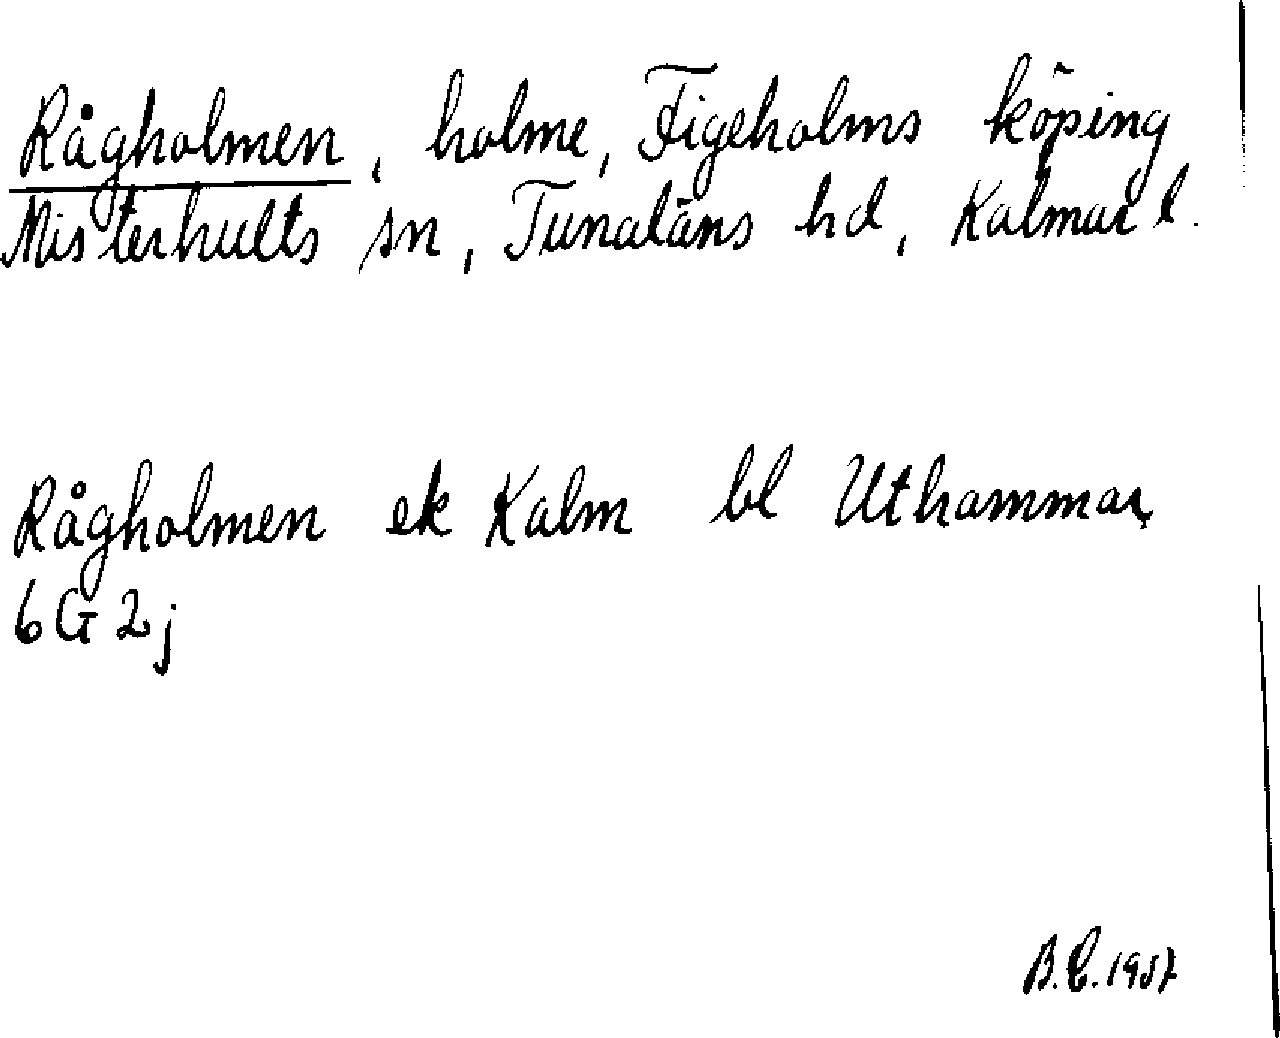 Rågholmen, holme, Figeholms köping
Misterhults sn, Tunaläns hd, Kalmar l.
Rågholmen ek Kalm bl Uthammar,
6 G 2 j
B.E. 1957